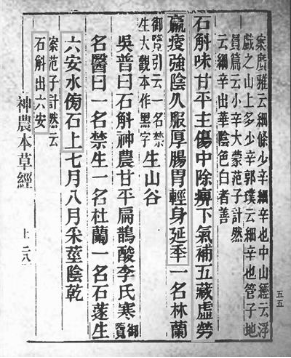 案廣雅云細條少辛細辛也中山經云浮
戲之山上多少辛郭璞云細辛也管子地
員篇云小辛大蒙范子計然
云細辛出華陰色白者善
石斛味甘平主傷中除痹下氣補五藏虛勞
羸瘦強陰久服厚腸胃輕身延秊一名林蘭
御覽引云一名禁
生大觀本作黑字 生山谷
吳普曰石斛神農甘平扁鵲酸李氏寒御覽
名醫曰一名禁生一名杜蘭一名石蓫生
六安水傍石上七月八月采莖陰乾
案范子計然云
石斛出六安
神農本草經 上 二八
五五